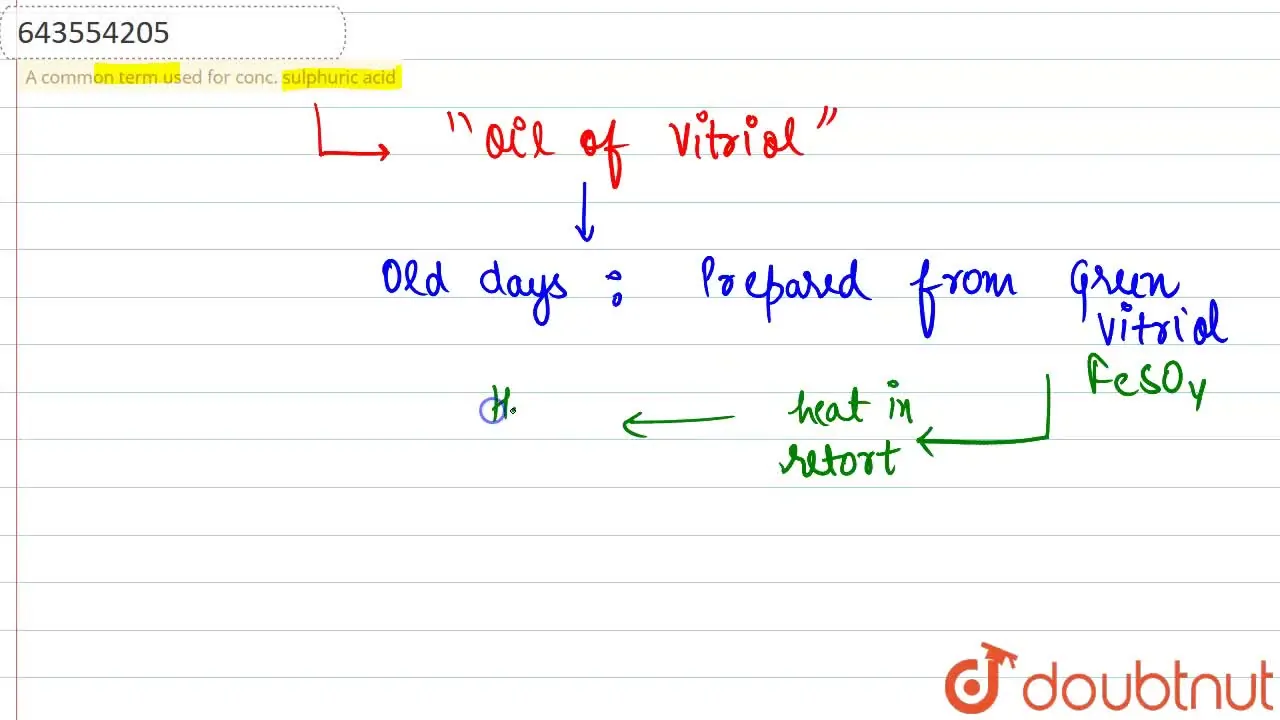 643554205
A common term used for conc. sulphuric acid
"Oil of Vitriol"
Old days : Prepared from Green
Vitriol
FeSO4
H
heat in
retort
doubtnut